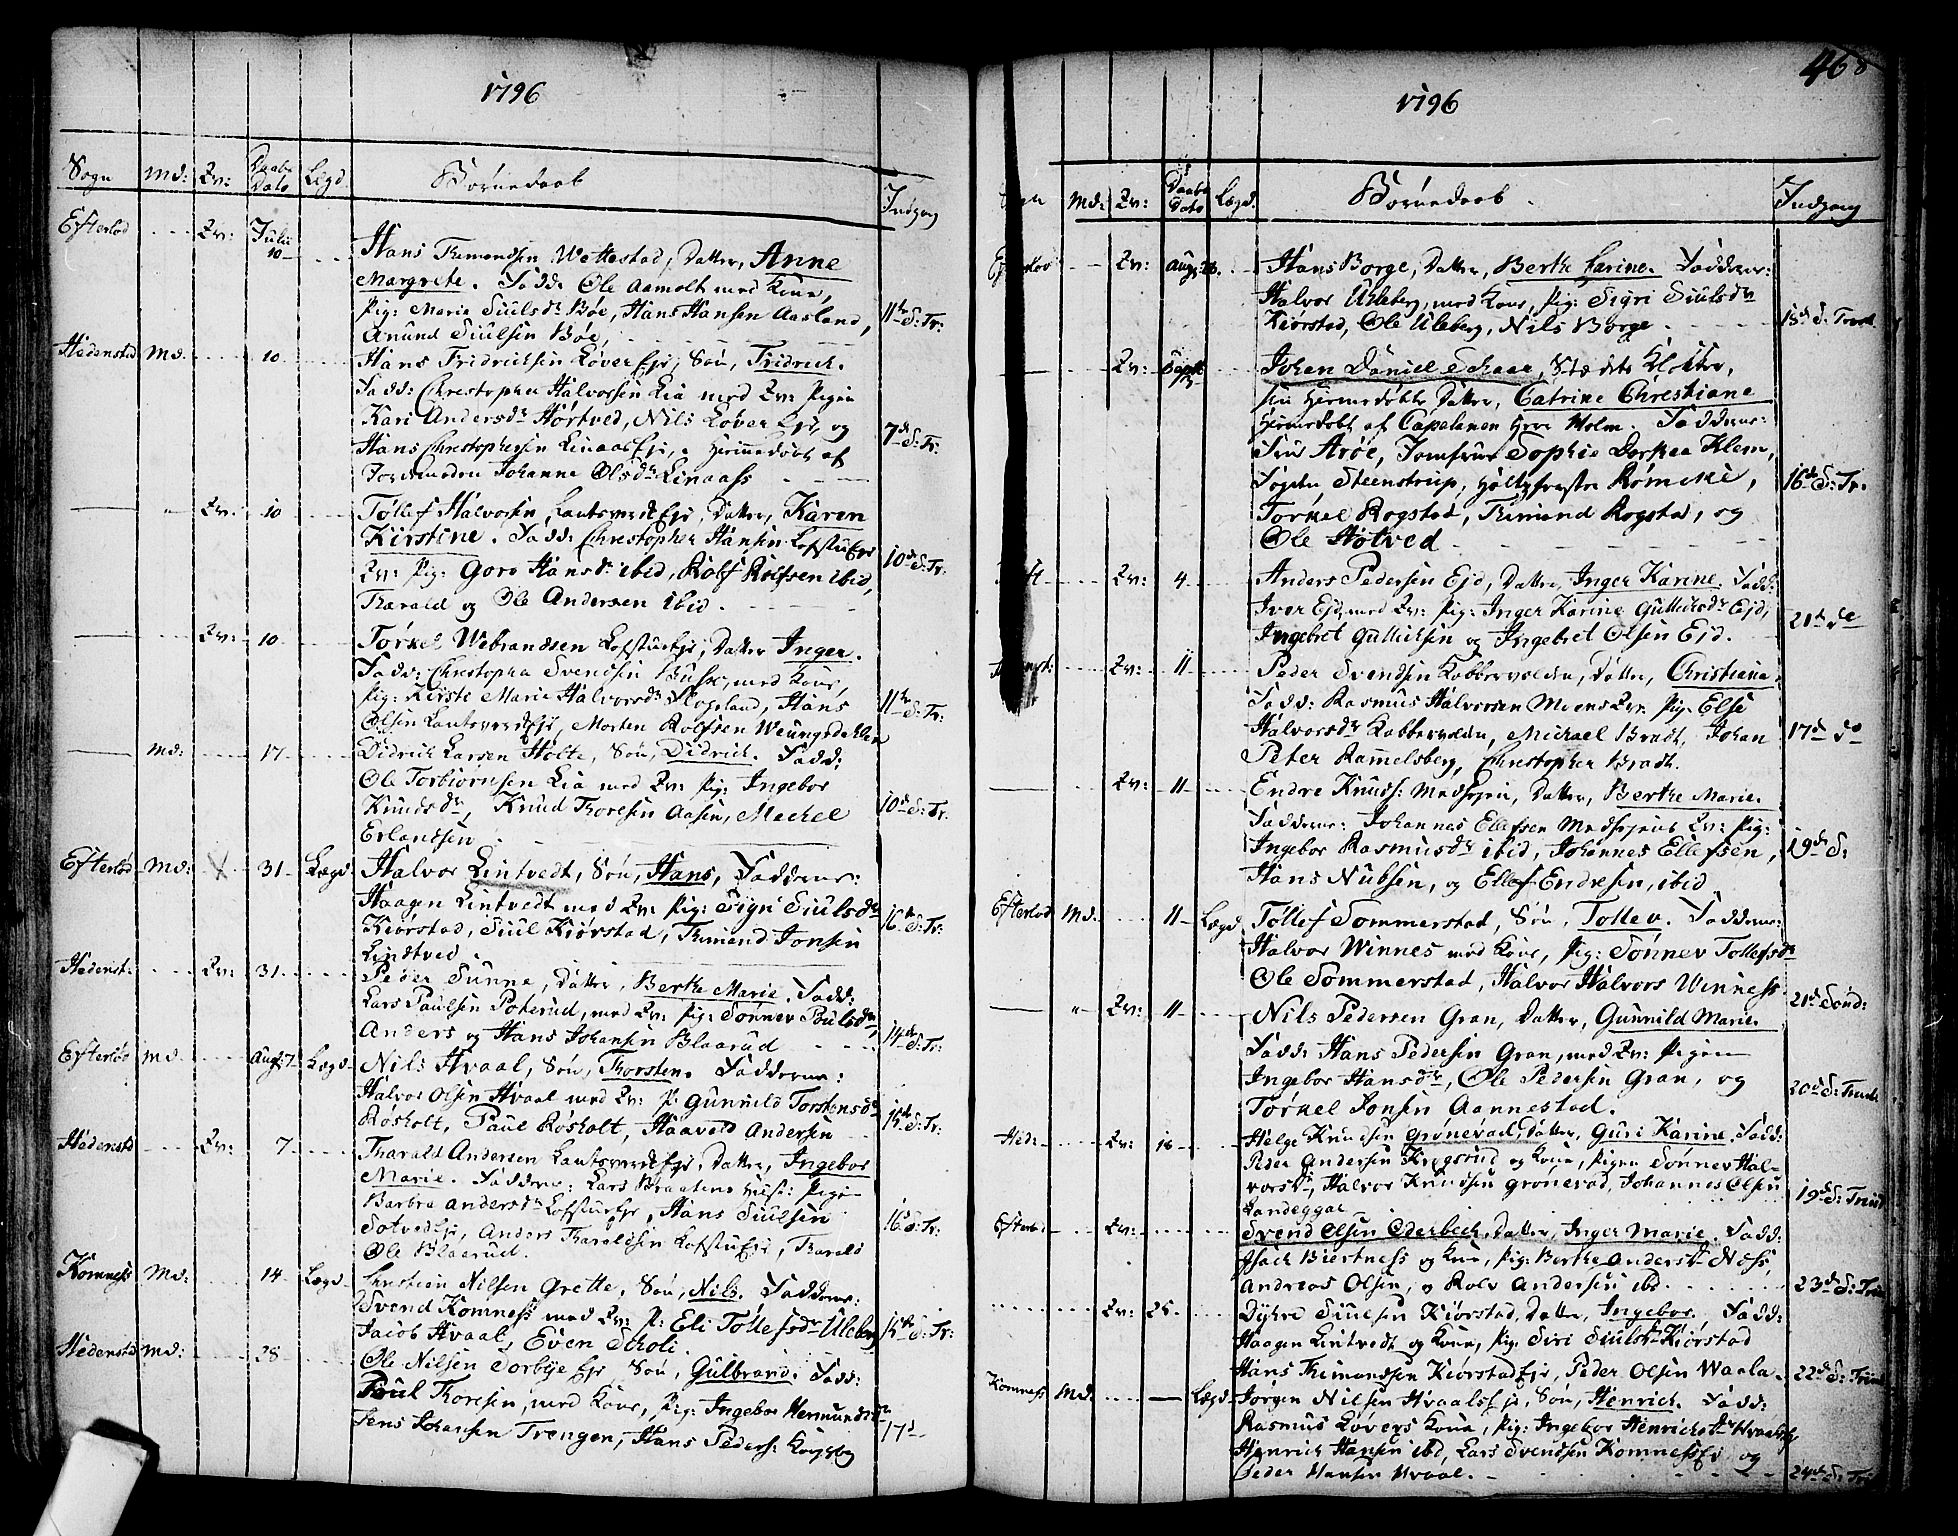 1796
Sogn Md: Qv: Daabs Dato Lægd. Børnedaab Indgang
Efterlod Qv: Julii 10 Hans Themondsen Wettestad, Datter, Anne
Margrete. Fadd: Ole Aamolt med Kone,
Pig: Marie Siulsdr Bøe, Hans Hansen Aasland, 11te S: Tr:
Anund Siulsen Bøe,
Hedenstad Md: 10 Hans Fridrichsen Løver Eje, Søn, Fridrich.
Fadd: Christopher Halvorsen Lia med Qv: Pigen
Kari Andersdr Hørtved, Nils Løver Eje, og 7de S: Tr:
Hans Christophersen Linaas Eje, Hjemmedøbt af
Johanne Olsdr Linaass
Qv: 10 Tollef Halvorsen Eje, Datter, Karen
Kirstine. Fadd: Christopher Hansen Lofstu Eje 10de S: Tr:
Qv: Pig: Goro Hansdr ibid, Rolf Rolfsen ibid,
Tharald og Ole Andersen ibid.
Qv: 10 Torkel Webrandsen Lofstu Eje, Datter Inger.
Fadd: Christopher Svendsen Busk, med Kone,
Pig: Kirsti Marie Halvorsdr Skogeland, Hans 11te S: Tr:
Olsen Eje, Morten Rolfsen Weungsdahlen
Md: 17 Didrich Larsen Holte, Søn, Didrich. Fadd:
Ole Torbiørnsen Lia med Qv: Pig: Ingebor
Knudsdr, Knud Thoresen Aasen, Mechel 10de S: Tr:
Erlandsen
Efterlod Md: X 31 Lægd Halvor Lintvedt, Søn, Hans, Fadderne:
Haagen Lintvedt med Qv: Pig: Sigri Siulsdr 10de S: Tr:
Kiørstad, Siul Kiørstad, Themond Jonsen
Lindtved
Hedenst: Qv: 31 Peder Sunne, Datter, Berthe Marie. Fadd:
Lars Paulsen Poterud, med Qv: Pig: Sønnev Poulsdr,
Anders og Hans Johansen Blaarud 14de S: Tr:
Efterlod Md. Aug: 7 Lægd. Nils Hvaal, Søn, Thorsten. Fadderne:
Halvor Olsen Hvaal med Qv: P: Gunnild Torstensdr
Røsholt, Paul Røsholt, Haaved Andersen 15de S: Tr:
Hedenstd Qv: 7 Tharald Andersen Eje, Datter, Ingebor
Marie. Fadderne: Lars Braatens Pigen
Barbra Andersdr Lofstu Eje, Hans Siulsen 16de S: Tr:
Sotved Eje, Anders Tharaldsen Lofstu Eje, Tharald
Ole Blaarud.
Komness Md: 14 Lægd Christian Nilsen Grette, Søn, Nils. Fadderne:
Svend Komness med Qv: P: Eli Tollefsdr Uleberg 15de S: Tr:
Jacob Hvaal, Even Scholi
Hedenstad Md: 28 Ole Nilsen Torbije Eje, Søn, Gulbrand. Fadd:
Poul Thoresen, med Kone, Pig: Ingebor Hermundsdr
Jens Johansen Trengen, Hans Peders: Kongsby 17de
468
1796
Sogn Md: Qv: Daabs Dato Lægd. Børnedaab. Indgang
Efterlov Qv: Aug: Hans Borge, Datter, Berthe Carine. Fadderne:
Halvor Uleberg, med Kone, Pig: Sigri Siulsdr
Kiørstad, Ole Uleberg, Nils Borge 15de S: Trint
Qv: Sept: Johan Daniel Schaar, Stædets Klokker,
sin Hjemmedøbte Datter, Catrine Christiane
Hjemmedøbt af Capelanen Herr Holm. Fadderne:
Fru Arøe, Jomfrue Sophie Dorthea Klem,
Fogden Steenstrup, Holtzførster Rømcke, 16de S: Tr:
Torkel Rogstad, Themond Rogstad, og
Ole Hotved
Qv: 4 Anders Pedersen Ejd, Datter, Inger Karine. Fadd:
Iver Ejd, med Qv: Pig: Inger Karine Gullichsdr Ejd, 21de do
Ingebret Gullichsen og Ingebret Olsen Ejd.
Qv: 11 Peder Svendsen Kobbervolden, Datter, Christiana.
Fadd: Rasmus Halvorsen Moens Qv: Pig: Else
Halvorsdr Kobbervolden, Michael Bradt, Johan 17de do
Peter Ramelsberg, Christopher Bradt.
Qv: 11 Endre Knuds: Medhejen, Datter, Berthe Marie.
Fadderne: Johannes Ellefsen Medhejens Qv: Pig:
Ingebor Rasmusdr ibid, Johannes Ellefsen, 19de S:
Hans Nubsen, og Ellef Endresen, ibid
Efterlod Md. 11 Lægd Tollef Sommerstad, Søn, Tollev. Fadderne:
Halvor Winnes med Kone, Pig: Sønnev Tollefsdr
Ole Sommerstad, Halvor Halvors Winness 21de Sønd:
Qv: 11 Nils Pedersen Gran, Datter, Gunnild Marie.
Fadd: Hans Pedersen Gran, med Qv: Pigen
Ingebor Hansdr, Ole Pedersen Gran, og
Torkel Jonsen Aannestad. 20de S: Trinit
Hed: Qv: 18 Helge Knudsen Grønevad, Datter, Guri Karine. Fadd:
Peder Andersen Krogsrud og Kone, Pigen Sønnev Hal-
vorsdr, Halvor Knudsen Grønevad, Johannes Olsen 19de S: Trinit
Landeggar
Efterlod Qv: Svend Olsen Oderbech, Datter, Inger Marie. Fadd:
Isach Biertness og Kone, Pig: Berthe Andersdr Næss,
Andreas Olsen, og Rolv Andersen ibd 23de S: Trin
Qv: 25 Dyhre Siulsen Kiørstad, Datter, Ingebor. Fadd:
Haagen Lintvedt og Kone, Pig: Siri Siulsdr Kiørstad
Hans Themondsen Kiørstad Eje, Peder Olsen Waala 22de S: Trinit
Komness Md. Lægd Jorgen Nilsen Hvaals Eje, Søn, Henrich. Fadd:
Rasmus Løvers Kone, Pig: Ingebor Henrichsdr Hvaals Eje
Henrich Hansen ibd, Lars Svendsen Komness Eje og
Peder Hansen Hvaal. 24de S: Tr